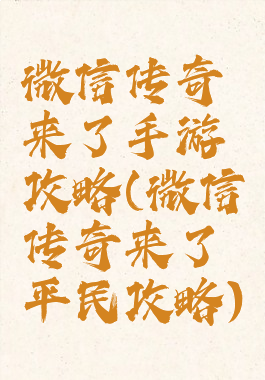 微信传奇
来了手游
攻略(微信
传奇来了
平民攻略)